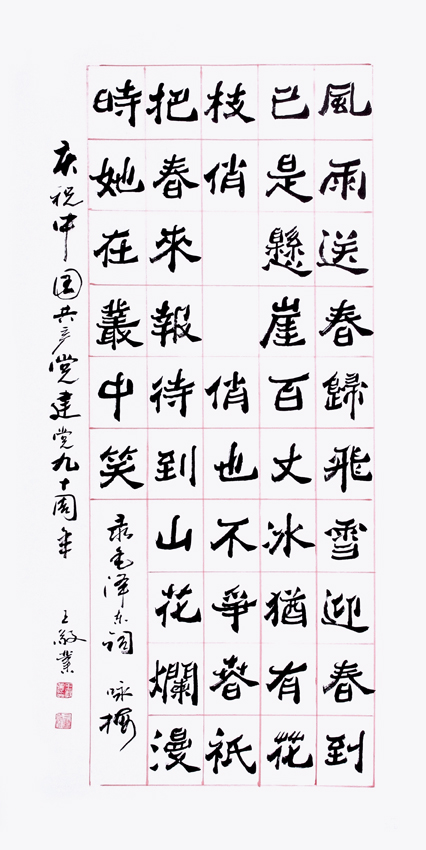 風雨送春歸飛雪迎春到
已是懸崖百丈冰猶有花
枝俏 俏也不爭春祇
把春來報待到山花爛漫
時她在叢中笑 录毛泽东词 咏梅
庆祝中国共产党建党九十周年 王敬業